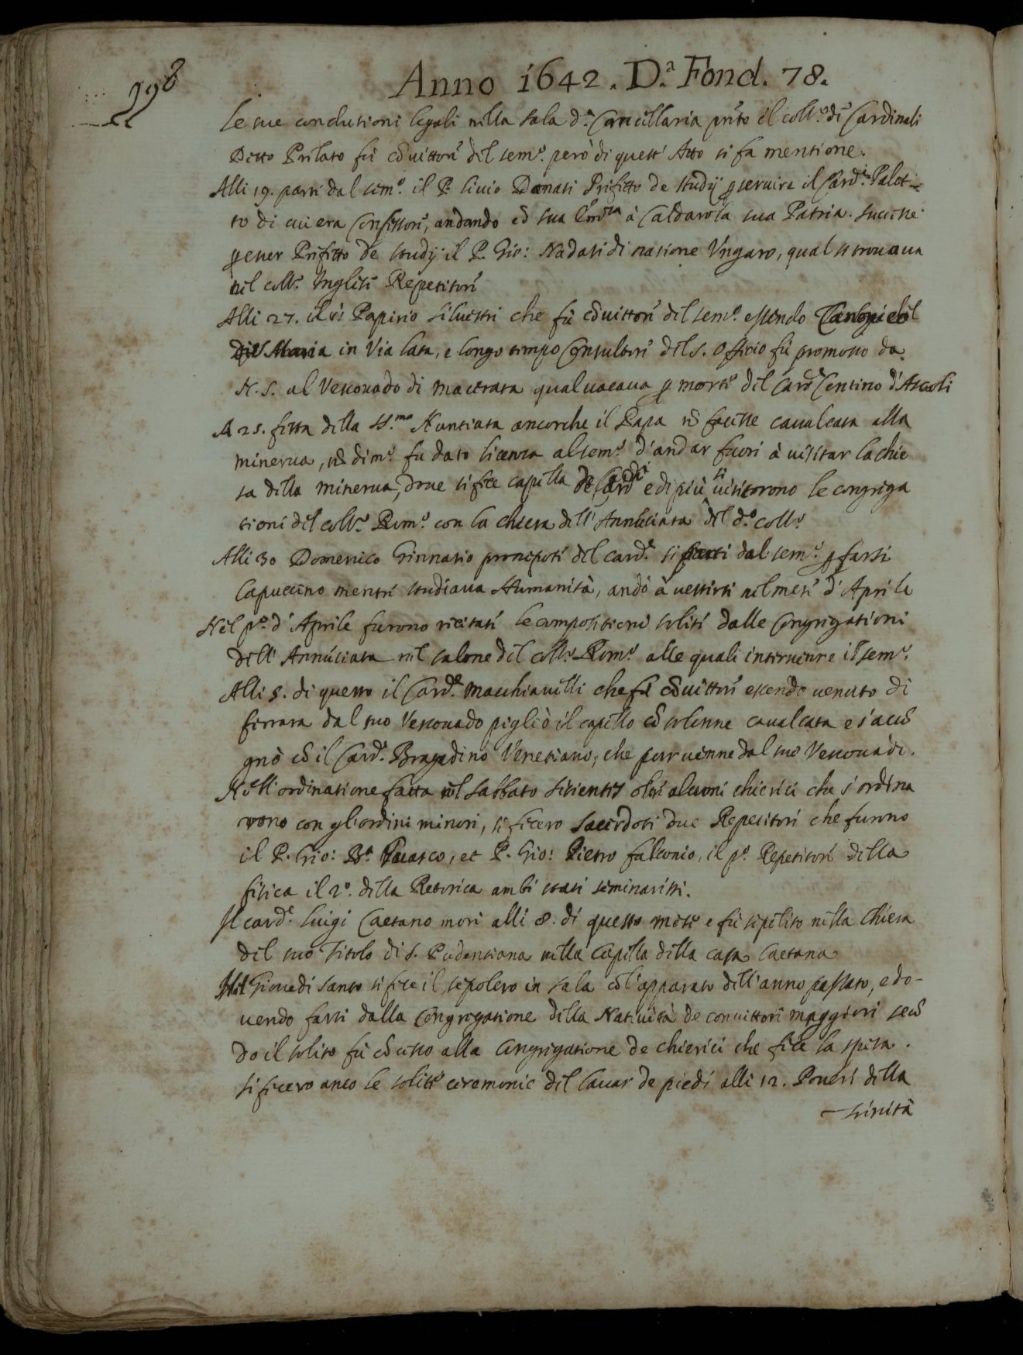 998
Anno 1642. D.ª Fond. 78.
le sue conclusioni legali nella sala d.ª Cancellaria pnto il coll.º di Cardinali
Detto Prelato fù cõvittore del sem.º però di quest' Atto si fa mentione.
Alli 19. parti dal sem.º il P. Livio Donati Prefetto de studij p servire il Card.le Palot=
to di cui era Confessore, andando cõ sua Em.za à Caldarola sua Patria. successe
p esser Prefetto de studij il P. Gio: Nadasi di natione Ungaro, qual si trovava
nel coll.º Inglese Repetitore
Alli 27. il Papirio Silvestri che fù cõvittore del sem.º essendo
Maria in Via lata, e longo tempo Consultore del S. Officio fù promosso da
N. S. al Vescovado di macerata qual vacava p morte del Card.le Centino d'Ascoli
A 25. festa della SS.ma Nuntiata ancorche il Papa nõ facesse cavalcata alla
minerva, nõ dim.º fu dato licenza al sem.º d'andar fuori à visitar la chie
sa della minerva, dove si fece capella de Card.li e di più si visitorono le congrega
tioni del coll.º Rom.º con la chiesa dell' Annũciata del d.º coll.º
Alli 30 Domenico Ginnasio pronepote del card.le si parti dal sem.º p farsi
Capuccino mentre studiava Humanità, andò à vestirsi nel mese d'Aprile
Nel p.º d'Aprile furono recitate le compositioni solite dalle Congregationi
dell' Annũciata nel salone del coll.º Rom.º alle quali intervenne il sem.º
Alli 5. di questo il Card.le Macchiavelli che fù cõvittore essendo venuto di
ferrara dal suo Vescovado pigliò il capello cõ solenne cavalcata e s'accõ
gnò cõ il Card.le Bragadino Venetiano, che pur venne dal suo Vescovado.
Nell' ordinatione fatta nel sabbato sitientes oltre alcuni chierici che s'ordina
rono con gl'ordini minori, si fecero sacerdoti due Repetitori che furono
il P. Gio: Bt.ª, et P. Gio: Pietro falconio, il p.º Repetitore della
fisica il 2.º della Retorica ambi stati seminaristi.
Il card.le Luigi Caetano morì alli 8. di questo mese e fù sepolito nella Chiesa
del suo Titolo di S. Pudentiana nella capella della casa Caetana
Giovedì santo si fece il sepolcro in sala cõ l'apparato dell'anno passato, e do-
vendo farsi dalla Congregatione della Natività de convittori maggiori secõ
do il solito fù cõcesso alla Congregatione de chierici che fece la spesa.
si fecero anco le solite ceremonie del lavar de piedi alli 12. Poveri della
trinità